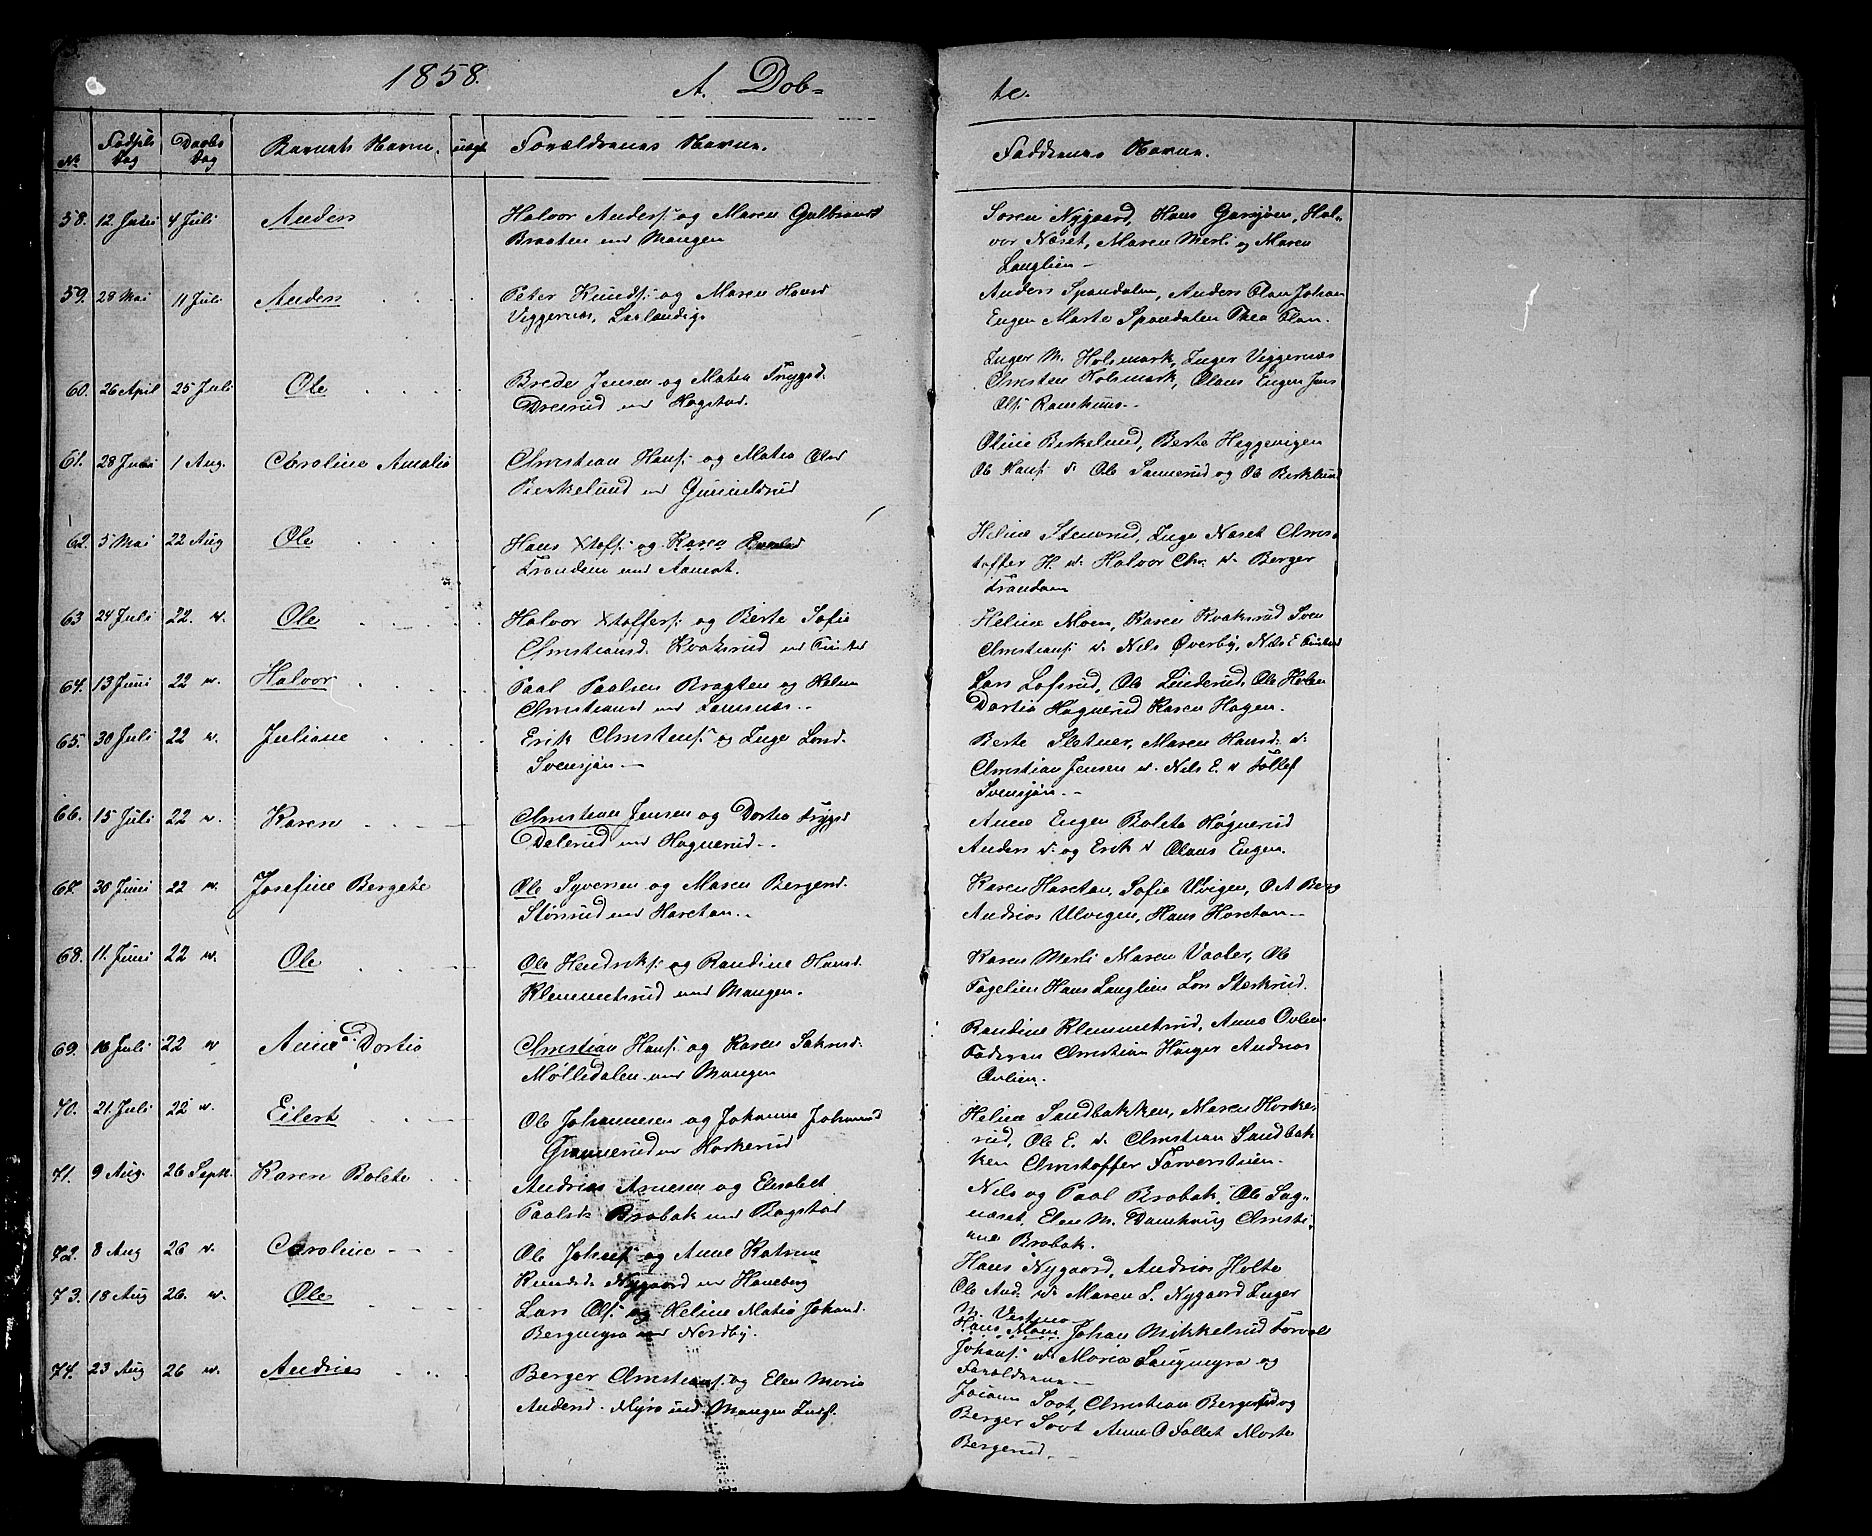 1858. A. Døb=
te.
No. Fødsels Dag Daabs Dag Barnets Navn. uægt Forældrenes Navne.
Faddernes Navne.
58. 12 Juni 4 Juli Anders Halvor Anders: og Maren Gulbrands
Braaten und Mangen
Søren Nygaard, Hans Gansjøen, Hal-
vor Næset, Maren Merli og Maren
Langlien
59. 28 Mai 11 Juli Anders Peter Knuds: og Maren Hansd
Viggernæs,
Anders Spondalen, Anders Olan Johan
Eugen Marte Spondalen Thea Olan.
60. 26 April 25 Juli Ole Brede Jensen og Matea Trygsd.
und Hogstad.
Inger M. Holsmark, Inger Viggernæs
Christen Holsmark, Olaus Eugen Jens
Ols:
61. 28 Juni 1 Aug. Caroline Amalia Christian Hans: og Matea Olsd
Birkelund und Gunneldsrud
Oline Birkelund, Berte Heggevigen
Ole Hans: d. Ole Sannerud og Ole Birklund
62. 5 Mai 22 Aug Ole Hans Xtofs: og Karen
Trandem und Aamot.
Heline Stenerud, Inge Næset Chris-
toffer H. d. Halvor Chr. d. Berger
Trandem
63 24 Juli 22. d. Ole Halvor Xtoffers: og Berte Sofie
Christiansd. Kvaksrud
Heline Moen, Karen Kvaksrud Sven
Christians: d. Nils Øverby, Nils E
64. 13 Juni 22 d. Halvor Paal Paalsen Bragten og Helene
Christiansd und
Lars Lofsrud, Ole Linderud, Ole Holen
Dortia Høgnerud Karen Hagen.
65. 30 Juli 22 d. Juliane Erik Christens: og Inge Larsd.
Svensjøen
Berte Sletner, Maren Hansd. d.
Christian Jensen d. Nils E. d Tollef
Svensjøen.
66. 15 Juli 22 d. Karen Christian Jensen og Dortia Trygsd
Dalerud und Høgnerud.
Anne Eugen Bolete Høgnerud
Anders d. og Erik d Olaus Eugen.
67. 30 Juni 22 d. Josefine Bergete Ole Syversen og Maren Bergersd.
Stinsrud und Haretan.
Karen Haretan, Sofie Ulvigen, O. A Berg
Andrias Ulvigen, Hans Haretan
68. 11. Juni 22 d. Ole Ole Hendriks: og Randine Hansd.
Klemmetsrud und Mangen.
Karen Merli Maren Vaaler, Ole
Fogelien Hans Langlien Lars Stærkrud.
69. 16 Juli 22 d Anne Dortia Christian Hans: og Karen
Mølledalen und Mangen
Randine Klemmetsrud, Anne Ovlien
Faderen Christian Hauger Andrias
Ovlien.
70. 21. Juli 22 d. Eilert Ole Johannesen og Johanne Johansd
Grannerud Harkerud
Heline Sandbakken, Maren Harke-
rud, Ole E. d. Christian Sandbak
ken Christoffer
71. 9 Aug. 26 Septb. Karen Bolete Andrias Arnesen og Elisabet
Paalsd. Brobak und Bøgstad
Nils og Paal Brobak, Ole Sag-
næset, Elen M. Damhaug Christi-
ane Brobak.
72. 8 Aug 26 d. Caroline Ole Johans: og Anne Katrine
Knudsd. Nygaard und Haneborg
Hans Nygaard, Andrias Holte
Ole And. d. Maren L. Nygaard Inger
M. Vestmo
73. 18 Aug 26. d. Ole Lars Ols: og Heline Matea Johansd.
Bergmyra und Nordby.
Hans Moen Johan Mikkelrud Torvald
Johans: d. Maria Langmyra og
Forældrene
74. 23 Aug 26 d. Andrias Berger Christians: og Elen Maria
Andersd. Myra und. Mangen
Johann Soot, Christian Bergerud og
Berger Soot Anne O Tollet Marte
Bergerud.